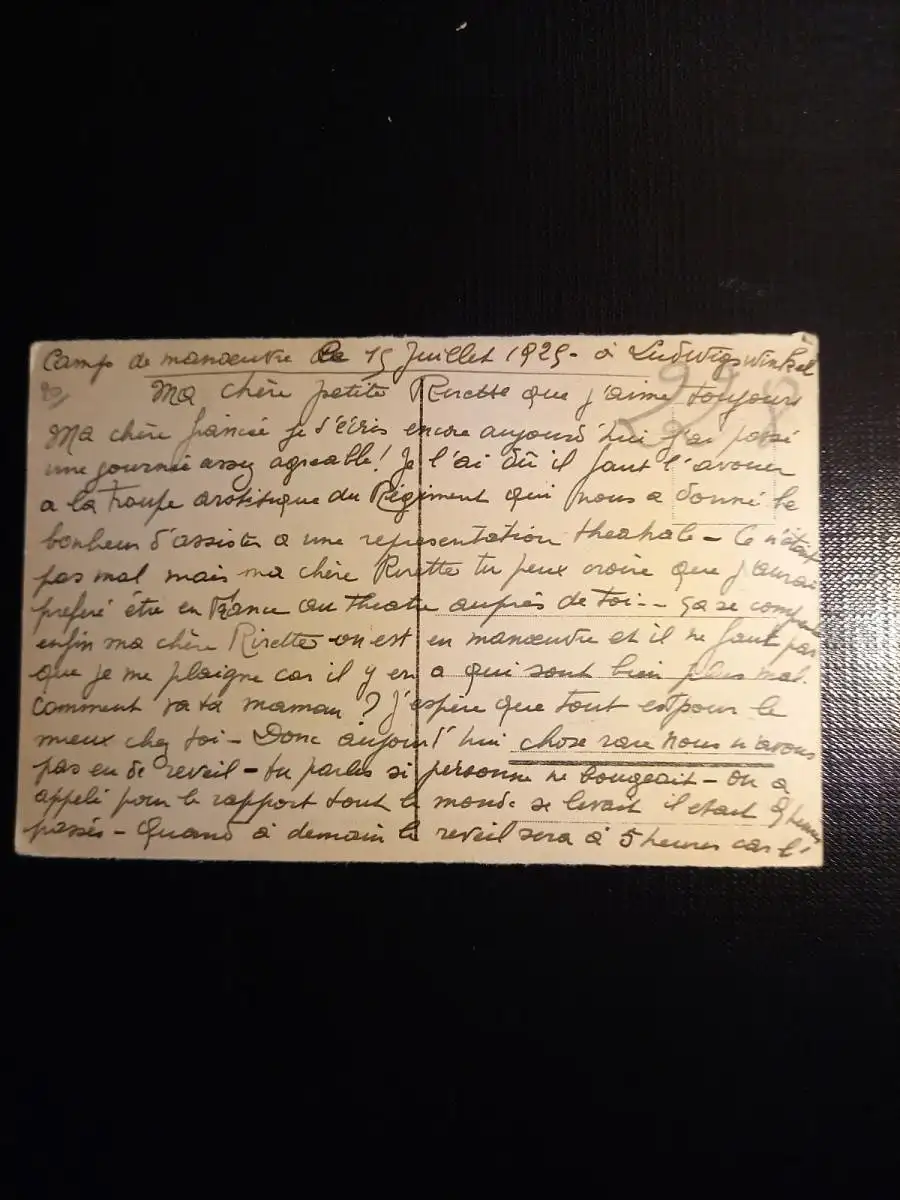 Camp de manœuvre le 15 Juillet 1929 - à Ludwigswinkel
Ma chère petite Rirette que j'aime toujours
Ma chère fiancée je t'écris encore aujourd'hui j'ai passé
une journée assez agreable! Je l'ai dû il faut l'avouer
a la troupe artistique du Régiment qui nous a donné le
bonheur d'assister a une representation theatrale - Ce n'était
pas mal mais ma chère Rirette tu peux croire que j'aurai
préféré être en France au theatre auprès de toi - - ça se comprend
enfin ma chère Rirette on est en manœuvre et il ne faut pas
que je me plaigne car il y en a qui sont bien plus mal.
Comment va ta maman ? J'espère que tout est pour le
mieux chez toi - Donc aujourd'hui chose rare nous n'avons
pas eu de reveil - tu parles si personne ne bougeait - On a
appelé pour le rapport tout le monde se levait il etait 9 heures
passés - Quand à demain le reveil sera à 5 heures car l'
228